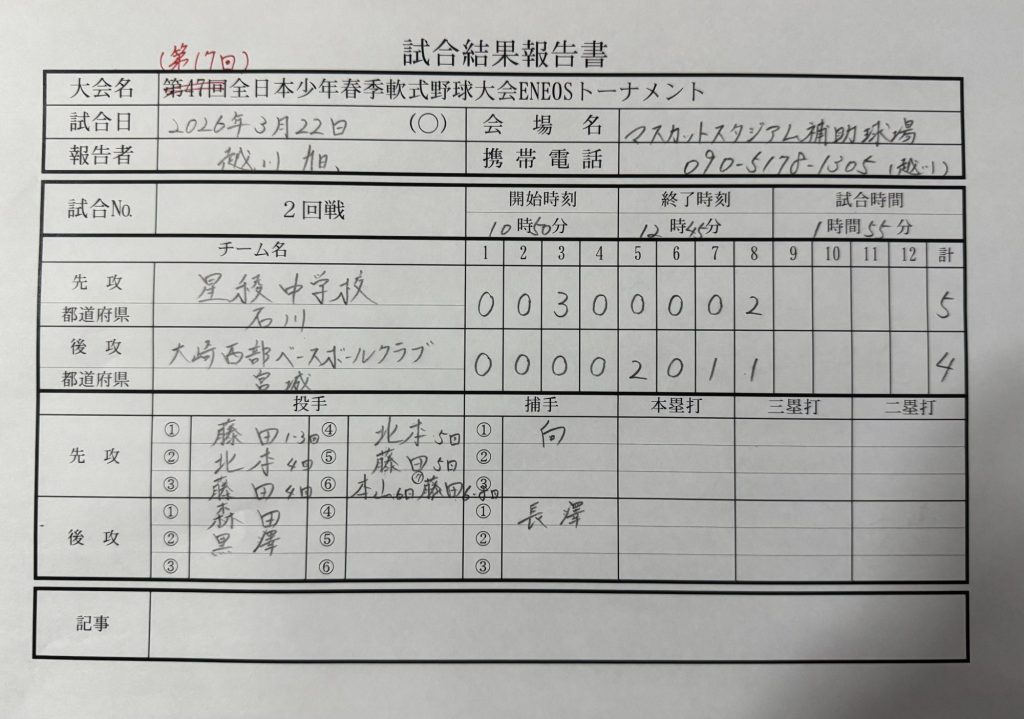 (第17回)
試合結果報告書
大会名 第47回全日本少年春季軟式野球大会ENEOSトーナメント
試合日 2026年3月22日 (〇) 会場名 マスカットスタジアム補助球場
報告者 越川 旭 携帯電話 090-5178-1305 (越川)
試合No. 2回戦 開始時刻 終了時刻 試合時間
10時50分 12時45分 1時間55分
チーム名 1 2 3 4 5 6 7 8 9 10 11 12 計
先攻 星稜中学校 0 0 3 0 0 0 0 2 5
都道府県 石川
後攻 大崎西部ベースボールクラブ 0 0 0 0 2 0 1 1 4
都道府県 宮城
投手 捕手 本塁打 三塁打 二塁打
先攻 ① 藤田1-3回 ④ 北本5回 ① 向
② 北本4回 ⑤ 藤田5回 ②
③ 藤田4回 ⑥ 本山6回 ⑦藤田6-8回 ③
後攻 ① 森田 ④ ① 長澤
② 黒澤 ⑤ ②
③ ⑥ ③
記事